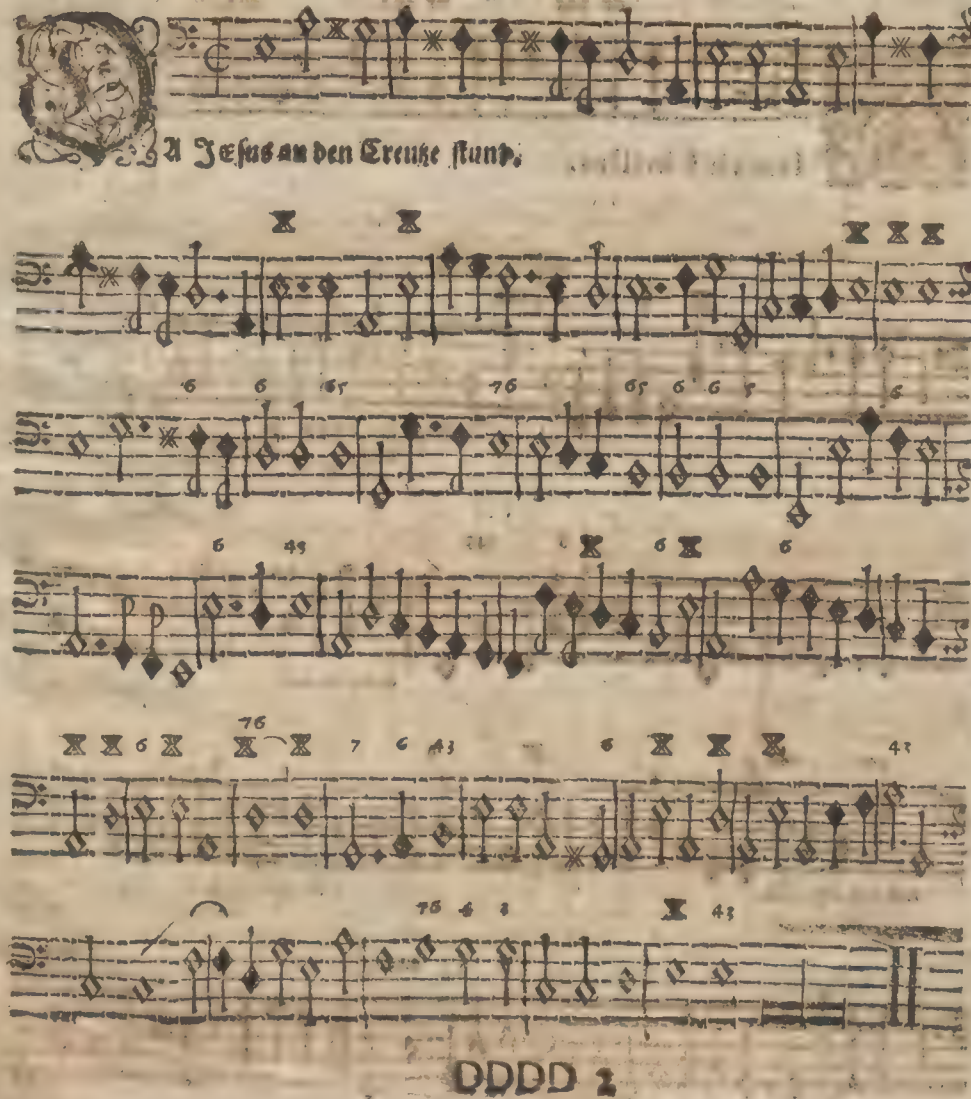 DA JEsus an den Creutze stund.
6 6 65 76 65 6 6 5 6
6 43 6 6
6 76 7 6 43 6 43
76 6 43
DDDD 2